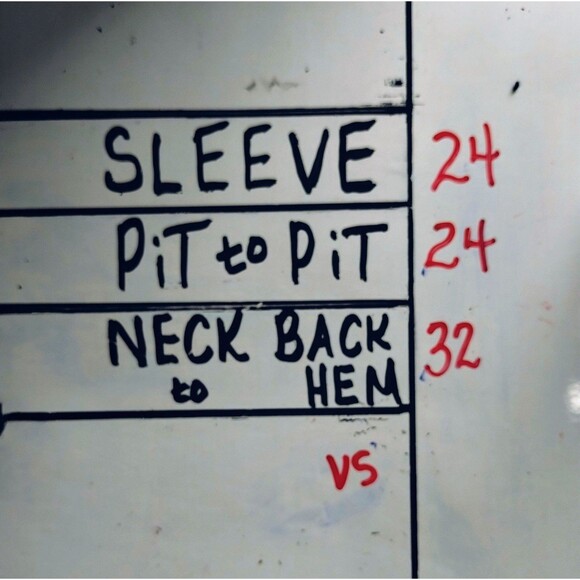 SLEEVE 24
PiT to PiT 24
NECK BACK 32
to HEM
VS